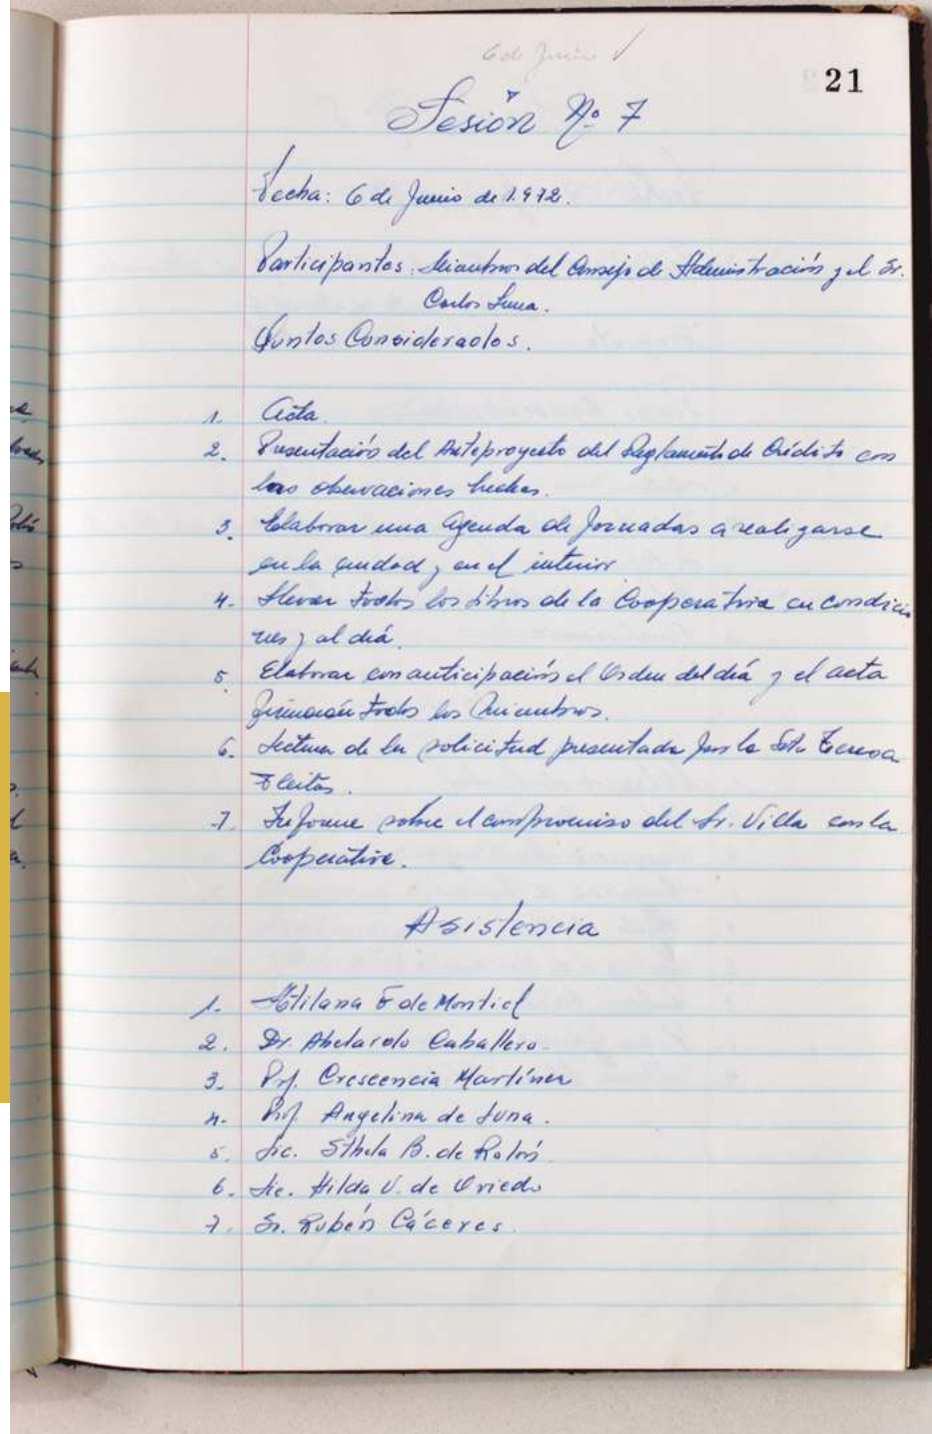 6 de Junio
21
Sesión Nº 7
Fecha: 6 de Junio de 1.972.
Participantes: Miembros del Consejo de Administración y el Sr.
Carlos Luna.
Puntos Considerados.
1. Acta.
2. Presentación del Anteproyecto del Reglamento de Crédito con
las observaciones hechas.
3. Elaborar una Agenda de Jornadas a realizarse
en la ciudad y en el interior
4. Llevar todos los libros de la Cooperativa en condicio
nes y al día.
5. Elaborar con anticipación el Orden del día y el acta
firmarán todos los Miembros.
6. Lectura de la solicitud presentada por la Srta Teresa
Fleitas.
7. Informe sobre el compromiso del Sr. Villa con la
Cooperativa.
Asistencia
1. de Montiel
2. Dr. Abelardo Caballero.
3. Prof. Crescencia Martínez
4. Prof. Angelina de Luna.
5. Lic. Sthela B. de Rolón
6. Lic. Hilda V. de Oviedo
7. Sr. Rubén Cáceres.